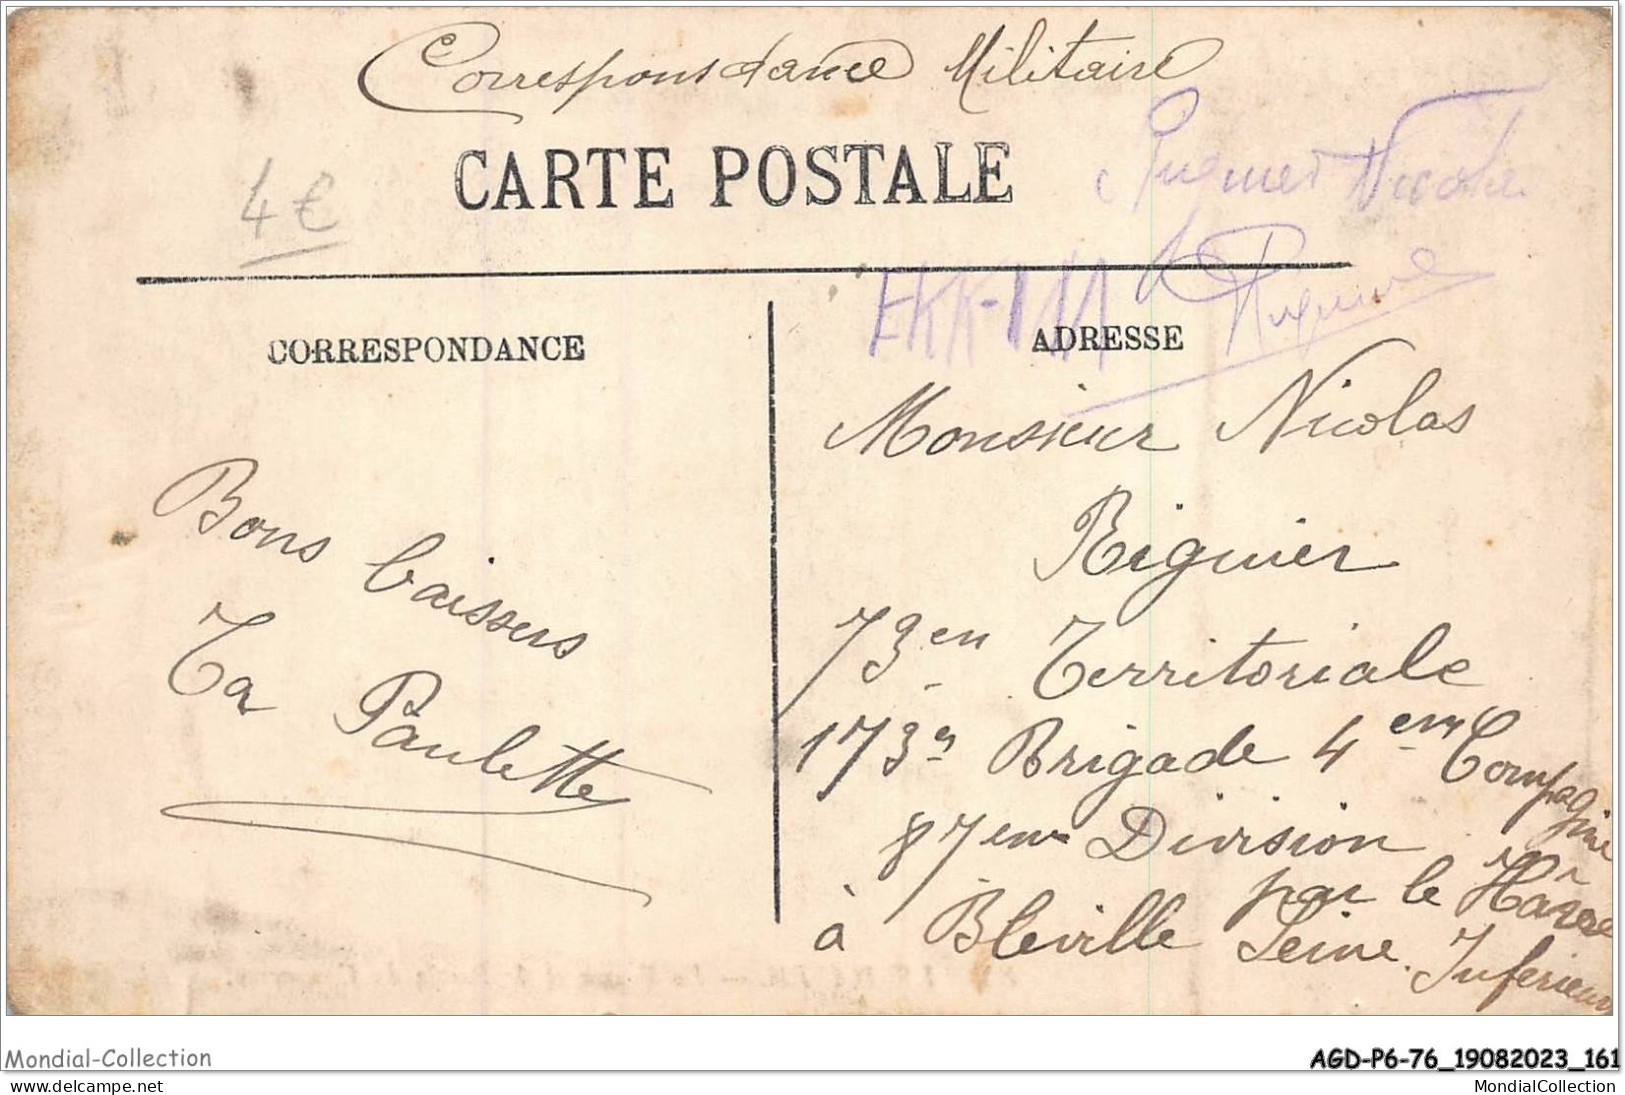 Correspondance Militaire
CARTE POSTALE
4 €
CORRESPONDANCE
ADRESSE
Bons baisers
Ta Paulette
Monsieur Nicolas
Riguier
73en Territoriale
173e Brigade 4em Compagnie
87em Division
par le Hâvre
à Bleville Seine Inferieur
Mondial-Collection
AGD-P6-76_19082023_161
MondialCollection